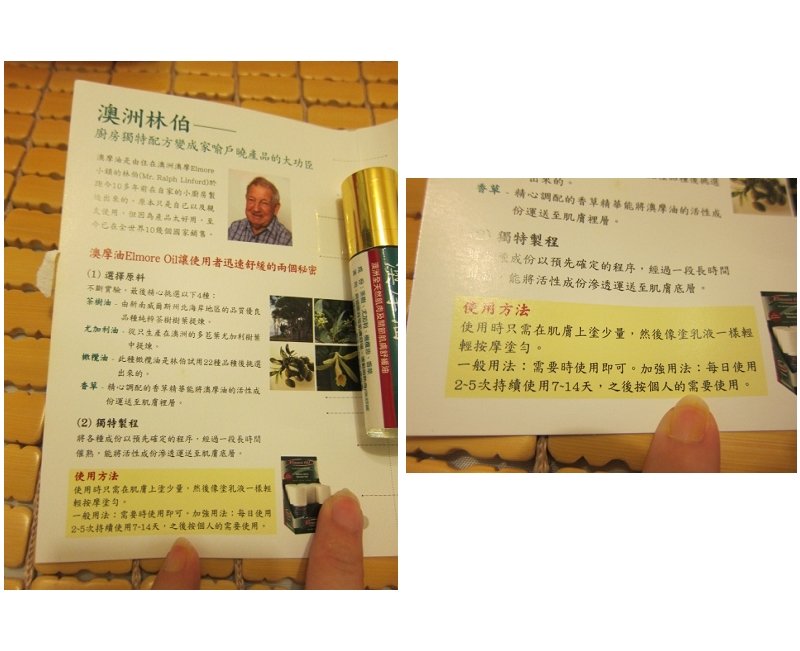 澳洲林伯——
廚房獨特配方變成家喻戶曉產品的大功臣
澳摩油是由住在澳洲澳摩Elmore
小鎮的林伯(Mr. Ralph Linford)於
距今10多年前在自家的小廚房製
造出來的，原本只是自己以及親
友使用，但因為產品太好用，至
今已在全世界10幾個國家銷售。
澳摩油Elmore Oil讓使用者迅速舒緩的兩個秘密
(1) 選擇原料
不斷實驗，最後精心挑選以下4種：
茶樹油 - 由新南威爾斯州北海岸地區的品質優良
品種純粹茶樹樹葉提煉。
尤加利油 - 從只生產在澳洲的多苞葉尤加利樹葉
中提煉。
橄欖油 - 此種橄欖油是林伯試用22種品種後挑選
出來的。
香草 - 精心調配的香草精華能將澳摩油的活性成
份運送至肌膚裡層。
(2) 獨特製程
將各種成份以預先確定的程序，經過一段長時間
催熟，能將活性成份滲透運送至肌膚底層。
使用方法
使用時只需在肌膚上塗少量，然後像塗乳液一樣輕
輕按摩塗勻。
一般用法：需要時使用即可。加強用法：每日使用
2~5次持續使用7~14天，之後按個人的需要使用。
出來的。
香草 - 精心調配的香草精華能將澳摩油的活性成
份運送至肌膚裡層。
2) 獨特製程
種成份以預先確定的程序，經過一段長時間
，能將活性成份滲透運送至肌膚底層。
使用方法
使用時只需在肌膚上塗少量，然後像塗乳液一樣輕
輕按摩塗勻。
一般用法：需要時使用即可。加強用法：每日使用
2~5次持續使用7~14天，之後按個人的需要使用。